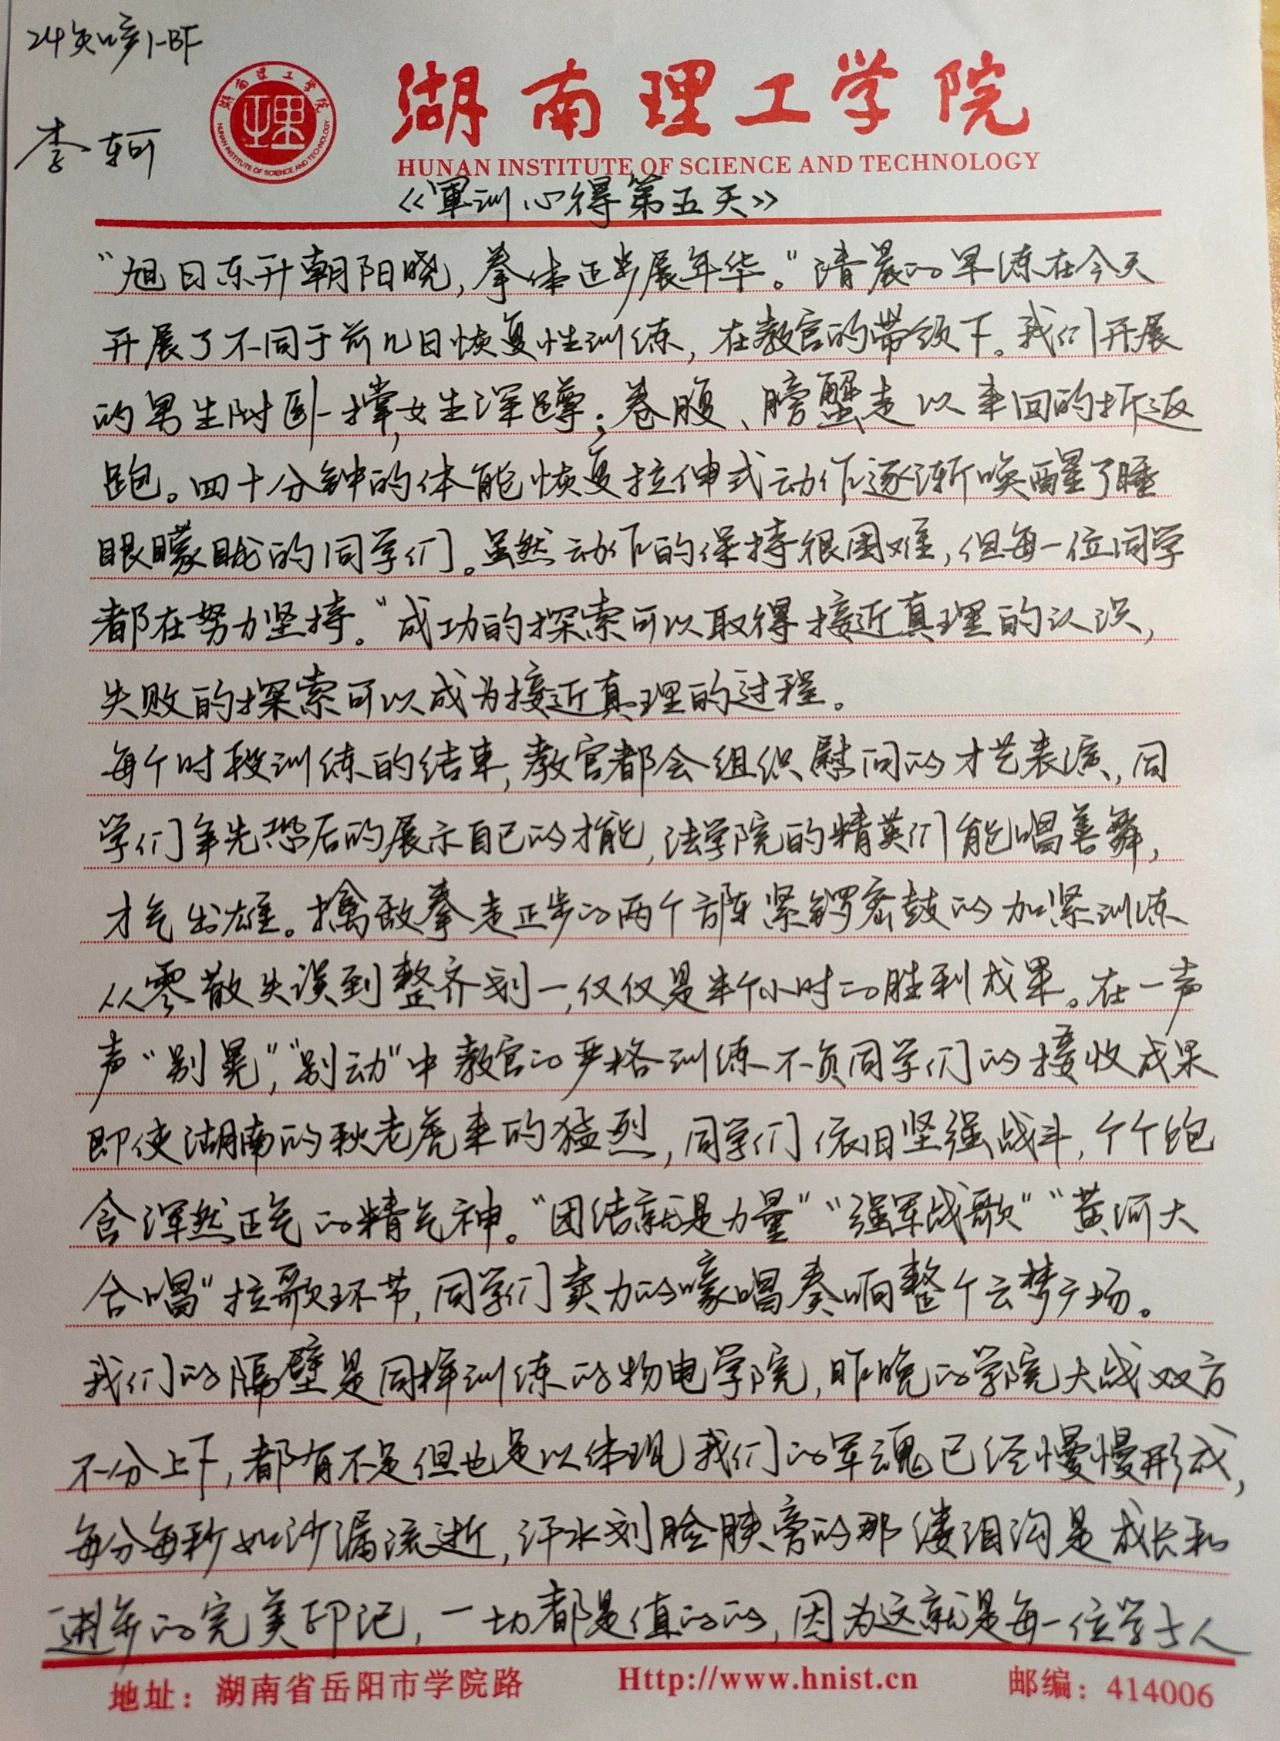 24知产1-BF
李轲
湖南理工学院
HUNAN INSTITUTE OF SCIENCE AND TECHNOLOGY
《軍训心得第五天》
“旭日东升朝阳晓，拳体正步展年华。”清晨的早练在今天
开展了不同于前几日恢复性训练，在教官的带领下。我们开展
的男生附卧撑，女生深蹲；卷腹、膀蟹走以来回的折返
跑。四十分钟的体能恢复拉伸式动作逐渐唤醒了睡
眼朦胧的同学们。虽然动作的保持很困难，但每一位同学
都在努力坚持。“成功的探索可以取得接近真理的认识，
失败的探索可以成为接近真理的过程。
每个时段训练的结束，教官都会组织慰问的才艺表演，同
学们争先恐后的展示自己的才能，法学院的精英们能唱善舞，
才气出雄。擒敌拳走正步的两个部队紧锣密鼓的加紧训练
从零散失误到整齐划一，仅仅是半个小时的胜利成果。在一声
声“别晃”，“别动”中教官的严格训练不负同学们的接收成果
即使湖南的秋老虎来的猛烈，同学们依旧坚强战斗，个个饱
含浑然正气的精气神。“团结就是力量”“强军战歌”“黄河大
合唱”拉歌环节，同学们卖力的嚎唱奏响整个云梦广场。
我们的隔壁是同样训练的物电学院，昨晚的学院大战双方
不分上下，都有不足但也足以体现我们的军魂已经慢慢形成，
每分每秒如沙漏流逝，汗水划脸胰旁的那缕泪沟是成长和
进步的完美印记，一切都是值的的，因为这就是每一位学子人
地址：湖南省岳阳市学院路 Http://www.hnist.cn 邮编：414006